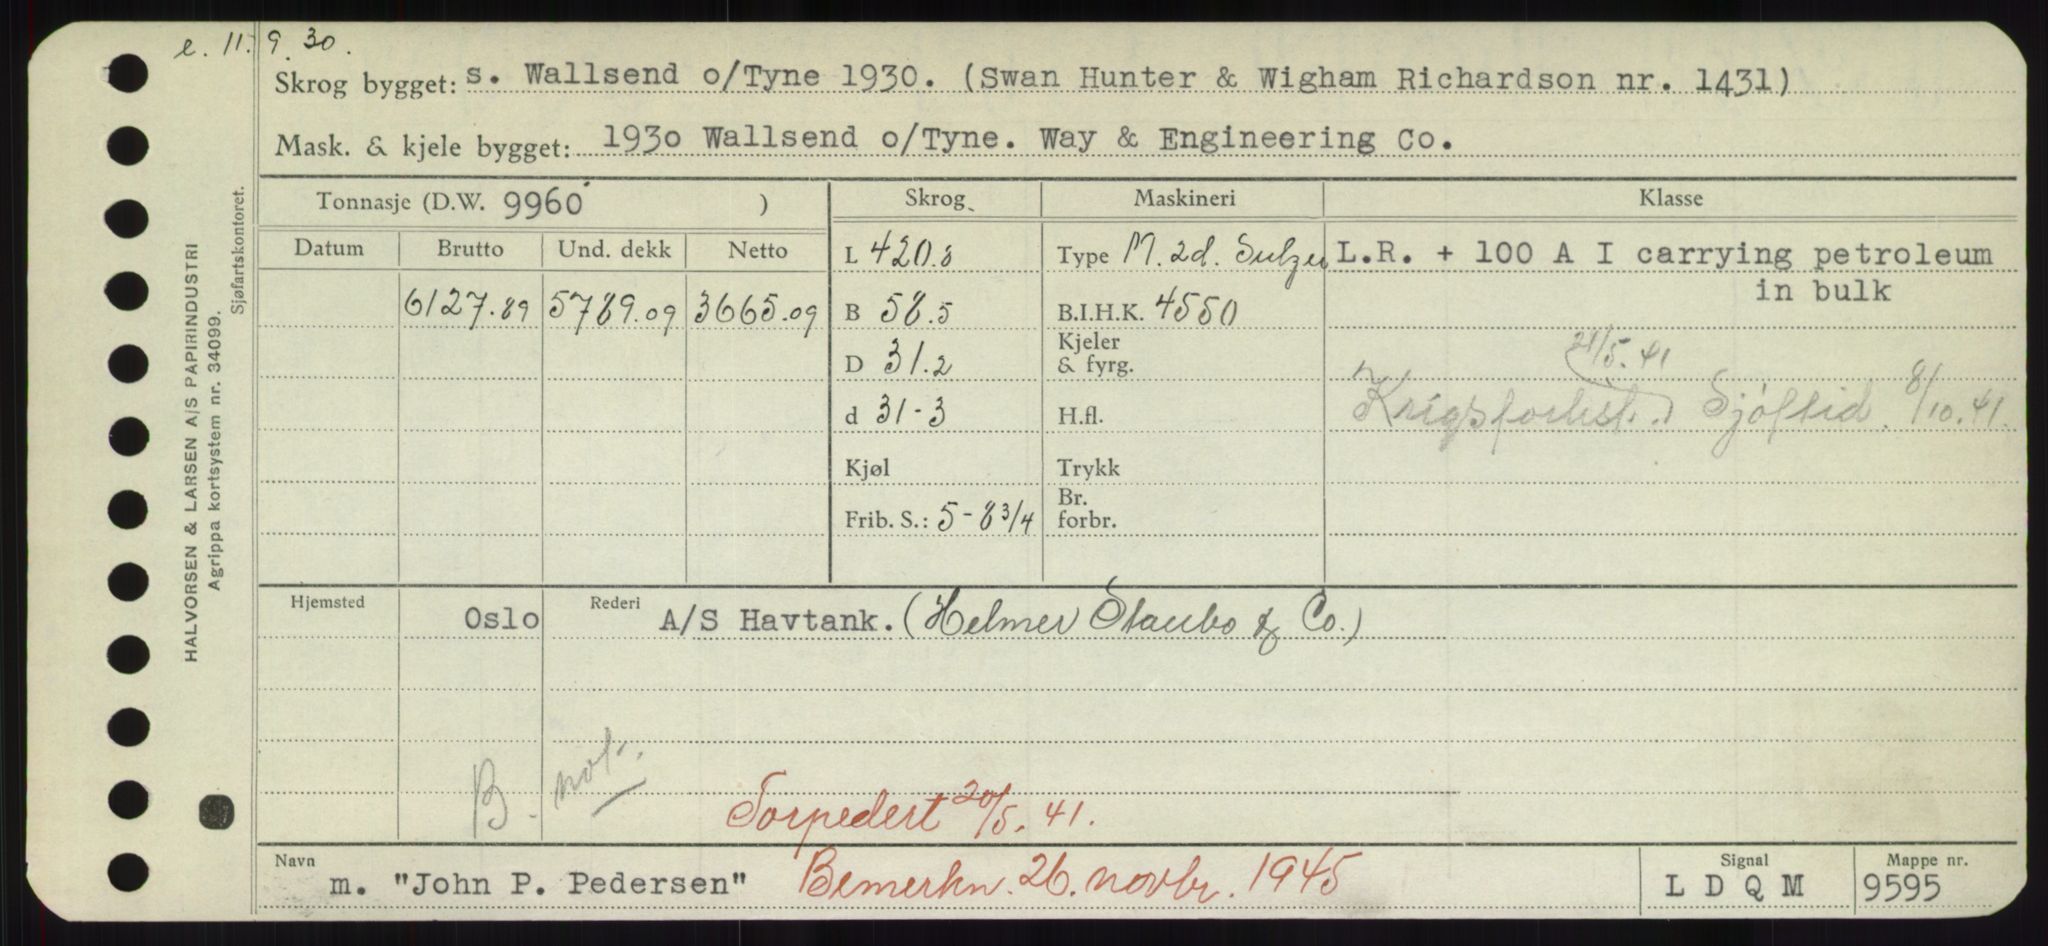 e. 11. 9. 30.
Skrog bygget: s. Wallsend o/Tyne 1930. (Swan Hunter & Wigham Richardson nr. 1431)
Mask. & kjele bygget: 1930 Wallsend o/Tyne. Way & Engineering Co.
Tonnasje (D.W. 9960 )
Skrog
Maskineri
Klasse
Datum Brutto Und. dekk Netto
6127.89 5789.09 3665.09
L 420.8
B 58.5
D 31.2
d 31-3
Kjøl
Frib. S.: 5-8 3/4
Type M. 2d. Sulzer
B.I.H.K. 4550
Kjeler
& fyrg.
H.fl.
Trykk
Br.
forbr.
L.R. + 100 A I carrying petroleum
in bulk
21/5. 41
Krigsforlist. Sjøftid. 8/10. 41.
Hjemsted Oslo Rederi A/S Havtank. (Helmer Staubo & Co.)
B. not.
Torpedert 20/5. 41.
Navn m. "John P. Pedersen" Bemerkn. 26. novbr. 1945
Signal L D Q M
Mappe nr. 9595
HALVORSEN & LARSEN A/S PAPIRINDUSTRI
Agrippa kortsystem nr. 34099.
Sjøfartskontoret.